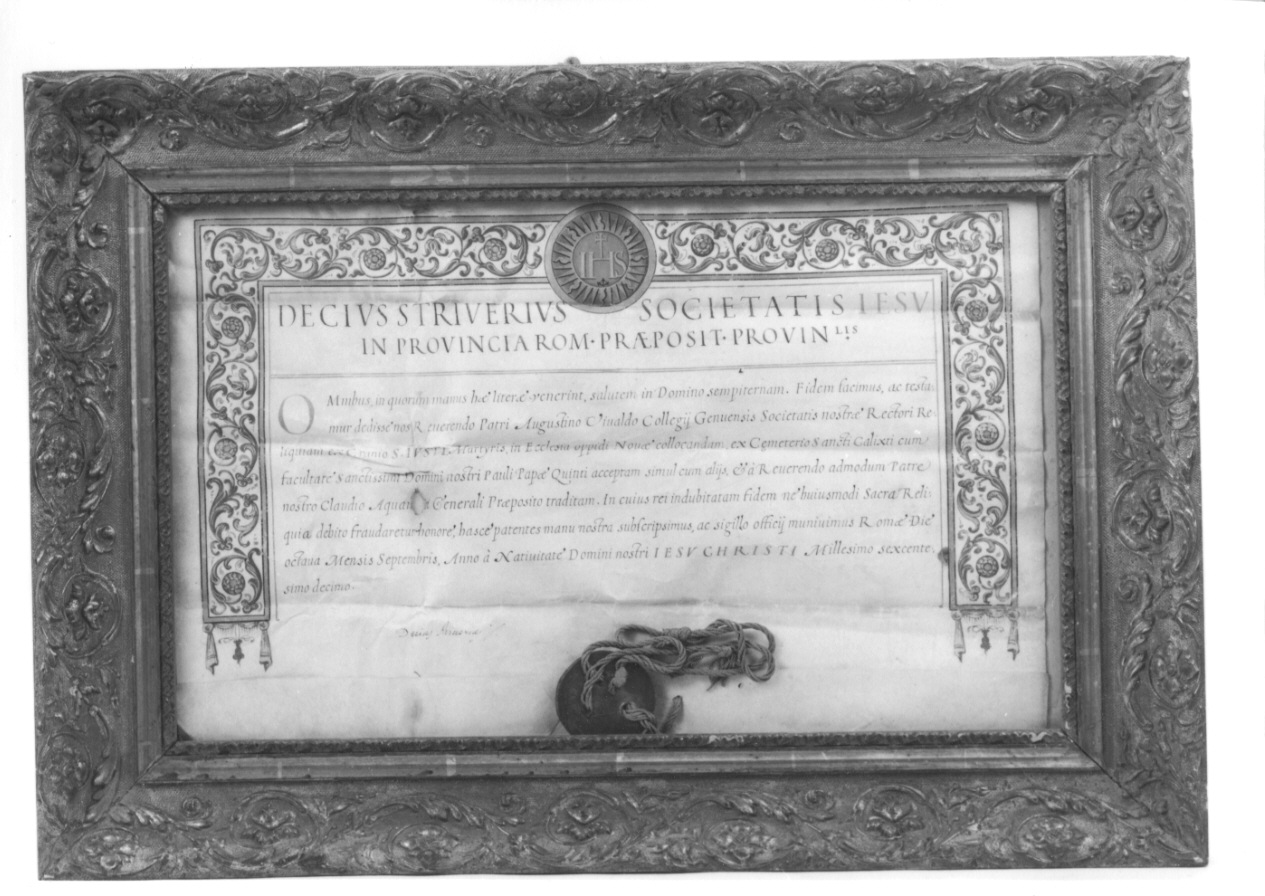 IHS
DECIVS STRIVERIVS SOCIETATIS IESV
IN PROVINCIA ROM·PRÆPOSIT·PROVIN LIS
OMnibus, in quorum manus hæ literæ venerint, salutem in Domino sempiternam. Fidem facimus, ac testa-
mur dedisse nos Reuerendo Patri Augustino Viualdo Collegij Genuensis Societatis nostræ Rectori Re-
liquiam ex Cranio S. IVSTI Martyris, in Ecclesia oppidi Nouæ collocandam, ex Cemeterio Sancti Calixti cum
facultate Sanctissimi Domini nostri Pauli Papæ Quinti acceptam simul cum alijs, & à Reuerendo admodum Patre
nostro Claudio Aquauiua Generali Præposito traditam. In cuius rei indubitatam fidem ne huiusmodi Sacra Reli-
quia debito fraudaretur honore, hasce patentes manu nostra subscripsimus, ac sigillo officij muniuimus Romæ Die
octaua Mensis Septembris, Anno à Natiuitate Domini nostri IESV CHRISTI Millesimo sexcente-
simo decimo.